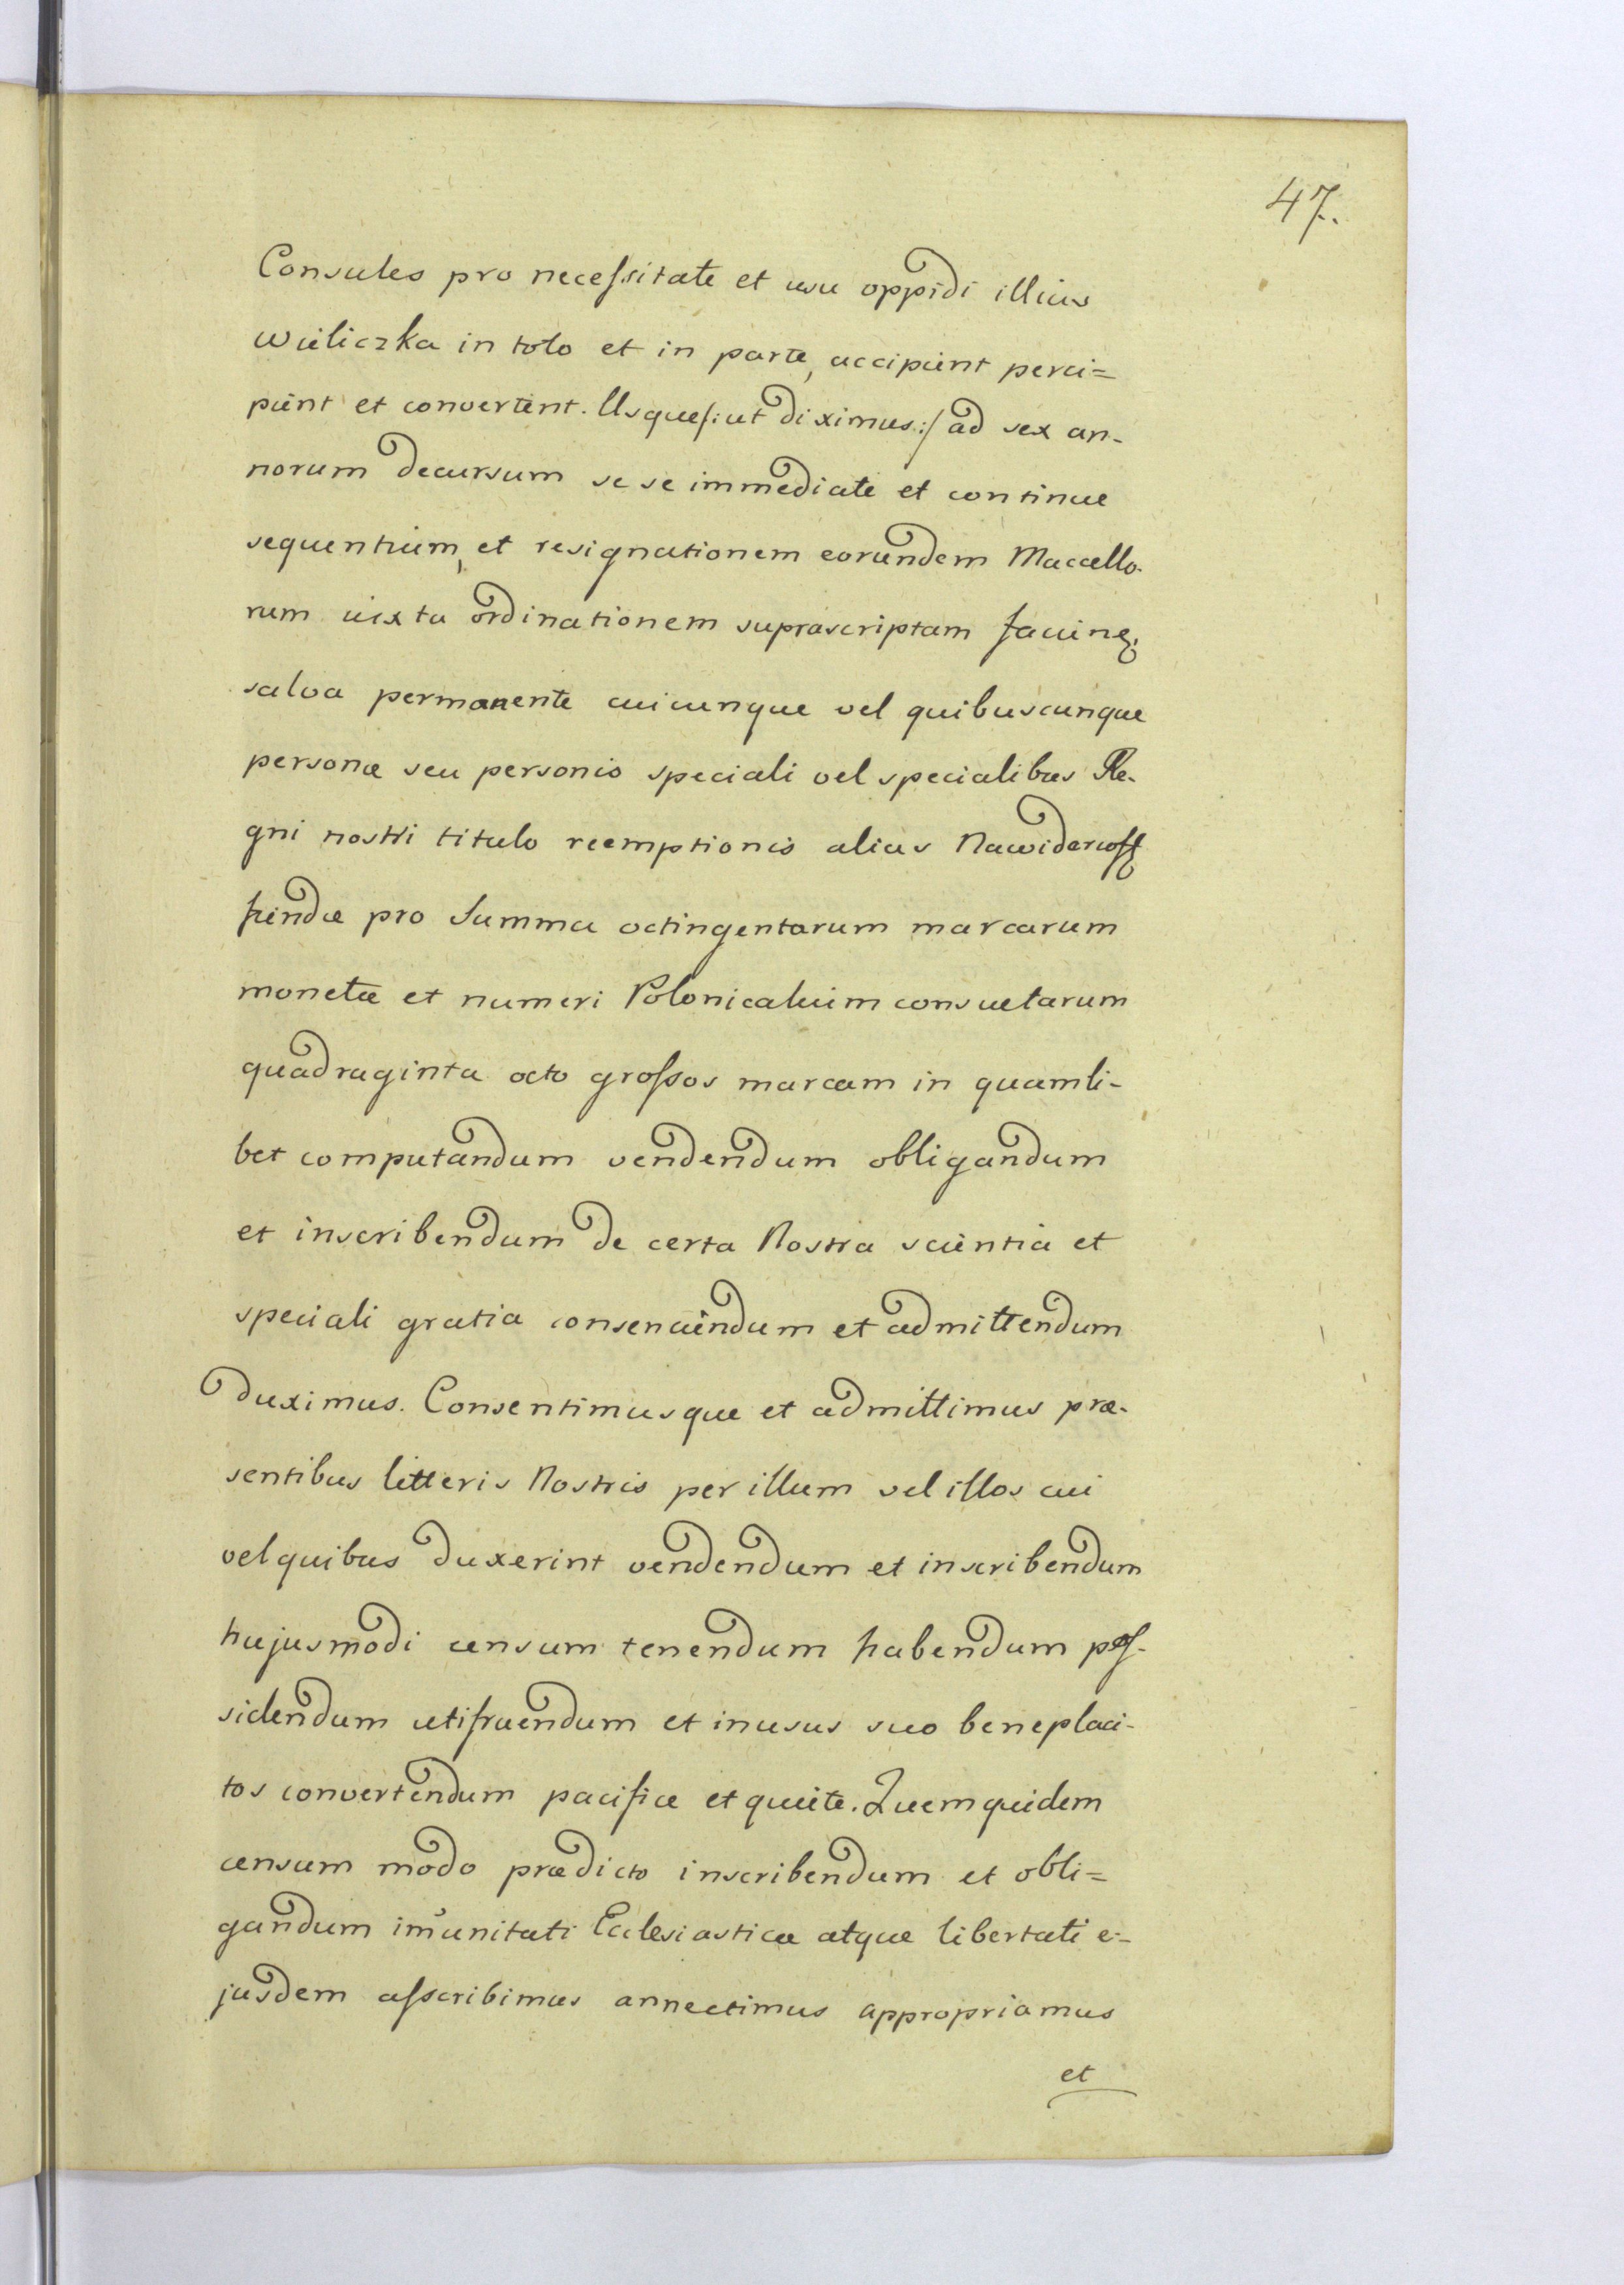 47.
Consules pro necessitate et usu oppidi illius
Wieliczka in toto et in parte, accipient perci=
pient et convertent. Usque /: ut diximus :/ ad sex an-
norum decursum se se immediate et continue
sequentium, et resignationem eorundem Maccello-
rum iuxta ordinationem suprascriptam
salva permanente cuicunque vel quibuscunque
personæ seu personis speciali vel specialibus Re-
gni nostri titulo reemptionis alias
pro Summa octingentarum marcarum
monetæ et numeri Polonicalium consuetarum
quadraginta octo grossos marcam in quamli-
bet computandum vendendum obligandum
et inscribendum de certa Nostra scientia et
speciali gratia consenciendum et admittendum
duximus. Consentimusque et admittimus præ-
sentibus litteris Nostris per illum vel illos cui
vel quibus duxerint vendendum et inscribendum
hujusmodi censum tenendum habendum pos-
sidendum utifruendum et in usus suo beneplaci-
tos convertendum pacifice et quiete. Quem quidem
censum modo prædicto inscribendum et obli=
gandum im̃unitati Ecclesiasticæ atque libertati e-
jusdem asscribimus annectimus appropriamus
et